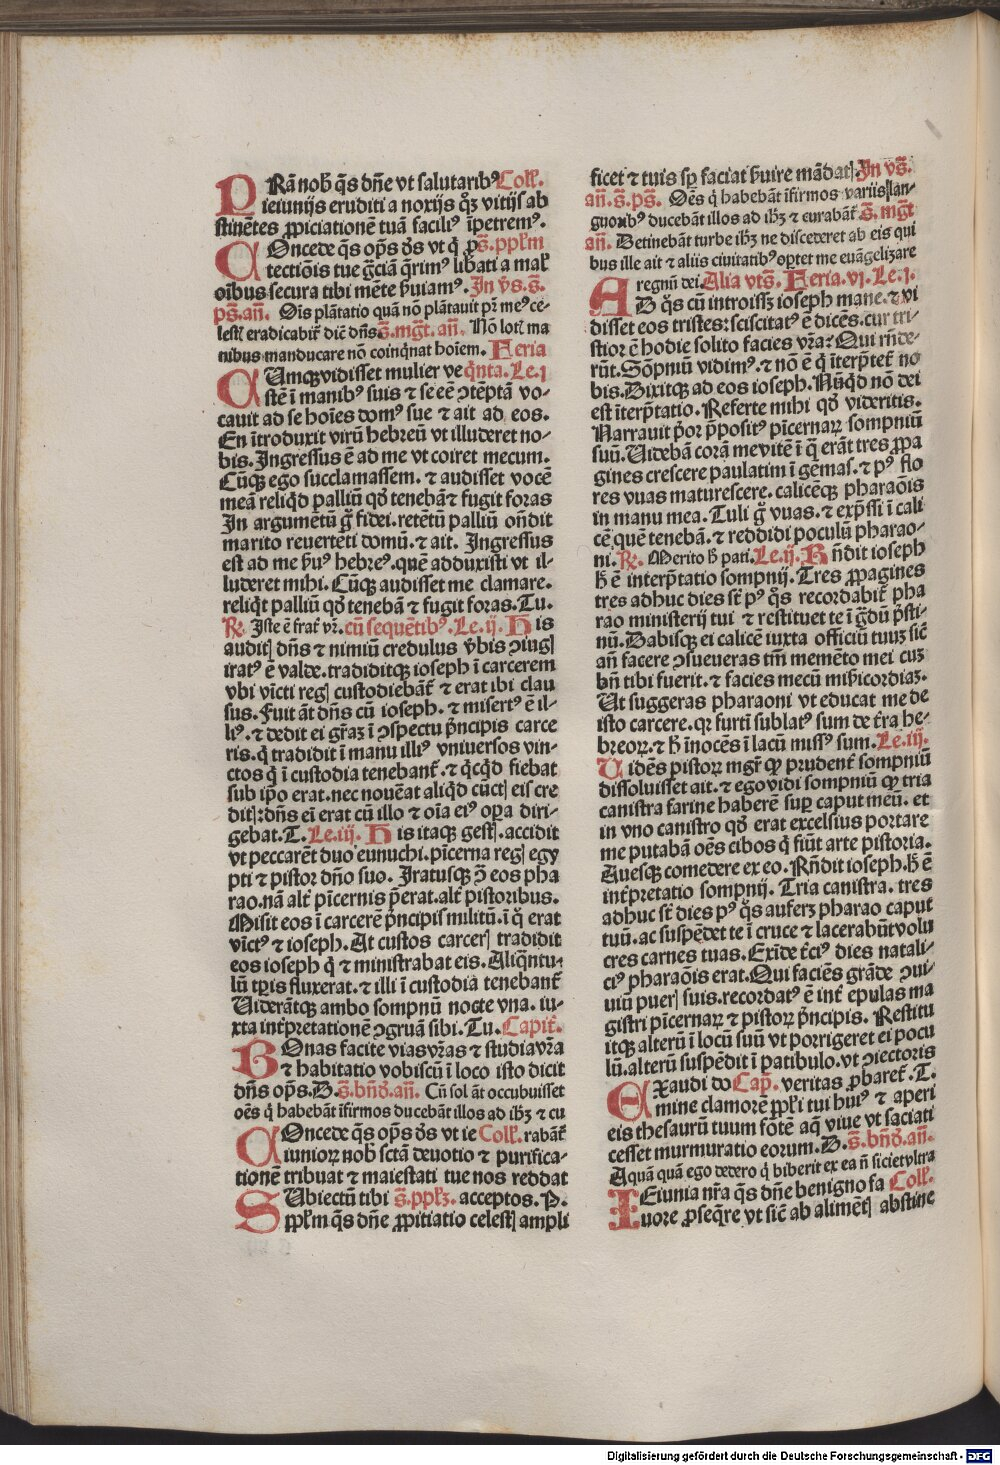 PRã nob̉ q̃s dñe vt salutarib⁹ Coll̃.
ieiunijs eruditi a noxijs q̃ꝫ vitijs ab
stinẽtes ꝓpiciationẽ tuã facili⁹ ĩpetrem⁹.
COncede q̃s op̃s d̃s vt q̃ ꝓ s̃. ppl̃m
tectiõis tue gr̃ciã q̃rim⁹ lib̃ati a mal̃
oĩbus secura tibi mẽte ẜuiam⁹. In v̉s. s̃.
ps̃. añ. Oĩs plãtatio quã nõ plãtauit pr̃ me⁹ ce-
lest̃ eradicabit̃ dic̃ dñs s̃. mg̃t. añ. Nõ lot̃ ma
nibus manducare nõ coinq̃nat hoĩem. Feria
CUmqꝫ vidisset mulier ve q̃nta. Le. j
stẽ ĩ manib⁹ suis ⁊ se eẽ ↄtẽptã vo-
cauit ad se hoĩes dom⁹ sue ⁊ ait ad eos.
En ĩtroduxit virũ hebreũ vt illuderet no-
bis. Ingressus ẽ ad me vt coiret mecum.
Cũqꝫ ego succlamassem. ⁊ audisset vocẽ
meã reliq̃d palliũ qd̃ tenebã ⁊ fugit foras
In argumẽtũ g̊ fidei. retẽtũ palliũ oñdit
marito reuertẽti domũ. ⁊ ait. Ingressus
est ad me ẜu⁹ hebre⁹. quẽ adduxisti vt il-
luderet mihi. Cũqꝫ audisset me clamare.
reliq̃t palliũ qd̃ tenebã ⁊ fugit foras. Tu.
℟. Iste ẽ frat̃ vr̃. cũ sequẽtib⁹. Le. ij. His
auditꝭ dñs ⁊ nimiũ credulus v̉bis ↄiugꝭ
irat⁹ ẽ valde. tradiditqꝫ ioseph ĩ carcerem
vbi vĩcti regꝭ custodiebãt̃ ⁊ erat ibi clau
sus. Fuit ãt dñs cũ ioseph. ⁊ misert⁹ ẽ il-
li⁹. ⁊ dedit ei gr̃aꝫ ĩ ↄspectu p̃ncipis carce
ris. q̃ tradidit ĩ manu illi⁹ vniuersos vin-
ctos q̃ ĩ custodia tenebant̃. ⁊ q̃cq̃d fiebat
sub ip̃o erat. nec nouẽat aliq̃d cũctꝭ eis cre
ditꝭ: dñs eĩ erat cũ illo ⁊ oĩa ei⁹ oꝑa diri-
gebat. T. Le. iij. His itaqꝫ gestꝭ. accidit
vt peccarẽt duo eunuchi. pĩcerna regꝭ egy
pti ⁊ pistor dño suo. Iratusqꝫ ↄ̃ eos pha
rao. nã alt̃ pĩcernis p̃erat. alt̃ pistoribus.
Misit eos ĩ carcerẽ p̃ncipis militũ. ĩ q̃ erat
vĩct⁹ ⁊ ioseph. At custos carcerꝭ tradidit
eos ioseph q̃ ⁊ ministrabat eis. Aliq̃ntu-
lũ tꝑis fluxerat. ⁊ illi ĩ custodia tenebant̃
Viderãtqꝫ ambo sompnũ nocte vna. iu-
xta int̃pretationẽ ↄgruã sibi. Tu. Capit̃.
BOnas facite vias vr̃as ⁊ studia vr̃a
⁊ habitatio vobiscũ ĩ loco isto dicit
dñs op̃s. D. s̃. bñd̃. añ. Cũ sol ãt occubuisset
oẽs q̃ habebãt ĩfirmos ducebãt illos ad ihꝫ ⁊ cu
COncede q̃s op̃s d̃s vt ie Coll̃. rabãt̃
iuniorꝝ nob̉ sctã deuotio ⁊ purifica-
tionẽ tribuat ⁊ maiestati tue nos reddat
SUbiectũ tibi s̃. ppl̃ꝫ. acceptos. P.
ppl̃m q̃s dñe ꝓpitiatio celestꝭ ampli
ficet ⁊ tuis sꝑ faciat ẜuire mãdatꝭ. In vs̃.
añ. s̃. ps̃. Oẽs q̃ habebãt ĩfirmos variis lan-
guorib⁹ ducebãt illos ad ihꝫ ⁊ curabãt̃ s̃. mg̃t
añ. Detinebãt turbe ihꝫ ne discederet ab eis qui
bus ille ait ⁊ aliis ciuitatib⁹ oꝑtet me euãgelizare
regnũ dei. Alia vts̃. Feria. vj. Le. j.
AD q̃s cũ introissꝫ ioseph mane. ⁊ vi
disset eos tristes: sciscitat⁹ ẽ dicẽs. cur tri-
stior ẽ hodie solito facies vr̃a? Qui rñde-
rũt. Sõpniũ vidim⁹. ⁊ nõ ẽ q̃ ĩterp̃tet̃ no
bis. Dixitqꝫ ad eos ioseph. Nũq̃d nõ dei
est ĩterp̃tatio. Referte mihi qd̃ videritis.
Narrauit p̉or p̃posit⁹ pĩcernarꝝ sompniũ
suũ. Videbã corã me vitẽ ĩ q̃ erãt tres ꝓpa
gines crescere paulatim ĩ gẽmas. ⁊ p⁹ flo
res vuas maturescere. calicẽqꝫ pharaõis
in manu mea. Tuli g̊ vuas. ⁊ exp̃ssi ĩ cali
cẽ quẽ tenebã. ⁊ reddidi poculũ pharao-
ni. ℟. Merito h̃ pati. Le. ij. Rñdit ioseph
h̃ ẽ interp̃tatio sompnij. Tres ꝓpagines
tres adhuc dies st̃ p⁹ q̃s recordabit̃ pha
rao ministerij tui ⁊ restituet te ĩ g̃dũ p̃sti-
nũ. Dabisqꝫ ei calicẽ iuxta officiũ tuuꝫ sic̃
añ facere ↄsueueras tm̃ memẽto mei cuꝫ
bñ tibi fuerit. ⁊ facies mecũ mĩẜicordiaꝫ.
Ut suggeras pharaoni vt educat me de
isto carcere. qꝛ furtĩ sublat⁹ sum de t̃ra he-
breorꝝ. ⁊ h̃ inocẽs ĩ lacũ miss⁹ sum. Le. iij.
Uidẽs pistorꝝ mgr̃ qꝙ prudent̃ sompniũ
dissoluisset ait. ⁊ ego vidi sompniũ qꝙ tria
canistra farine haberẽ suꝑ caput meũ. et
in vno canistro qd̃ erat excelsius portare
me putabã oẽs cibos q̃ fiũt arte pistoria.
Auesqꝫ comedere ex eo. Rñdit ioseph. h̃ ẽ
int̃pretatio sompnij. Tria canistra. tres
adhuc st̃ dies p⁹ q̃s auferꝫ pharao caput
tuũ. ac suspẽdet te ĩ cruce ⁊ lacerabũt volu
cres carnes tuas. Exĩde t̃ci⁹ dies natali-
ci⁹ pharaõis erat. Qui faciẽs grãde ↄui-
uiũ puerꝭ suis. recordat⁹ ẽ int̃ epulas ma
gistri pĩcernarꝝ ⁊ pistorꝝ p̃ncipis. Restitu
itqꝫ alterũ ĩ locũ suũ vt porrigeret ei pocu
lũ. alterũ suspẽdit ĩ patibulo. vt ↄiectoris
EXaudi do Cap̃. veritas ꝓbaret̃. T.
mine clamorẽ ppl̃i tui hui⁹ ⁊ aperi
eis thesaurũ tuum fõtẽ aq̃ viue vt saciati
cesset murmuratio eorum. D. s̃. bñd̃. añ.
Aquã quã ego dedero q̃ biberit ex ea ñ siciet vltra
IEiunia nr̃a q̃s dñe benigno fa Coll̃.
uore ꝓseq̃re vt sic̃ ab alimẽtꝭ abstine
Digitalisierung gefördert durch die Deutsche Forschungsgemeinschaft - DFG